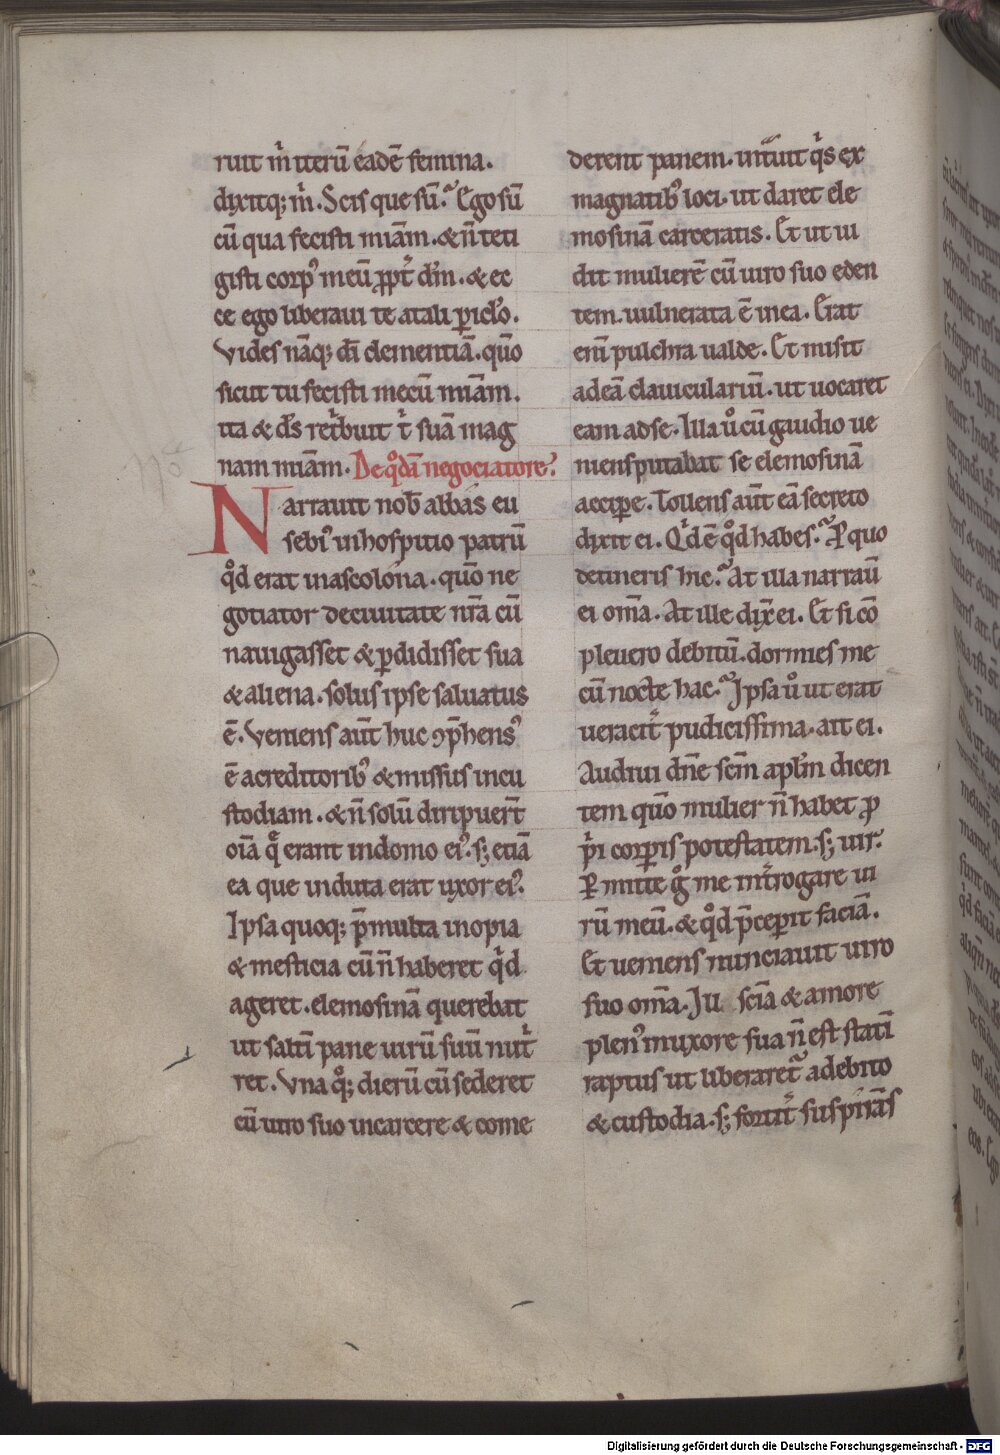 ruit m̄ iterū eadē femina.
dixitq; m̄. Scis que sū? Ego sū
cū qua fecisti miām. & n̄ teti
gisti corp' meū ꝓpt̄ dm̄. & ec
ce ego liberaui te a tali ꝑiclo.
Vides nāq; dī clementiā. quō
sicut tu fecisti mecū miam.
ita & ds̄ ret'buit t' suā mag
nam miām. De qdā negociatore.
Narrauit nob̄ abbas eu
sebi' in hospitio patrū
qd erat in ascolona. quō ne
gotiator de ciuitate nr̄a cū
nauigasset & ꝑdidisset sua
& aliena. solus ipse saluatus
ē. Veniens aūt huc ꝯp̄hens'
ē a creditorib' & missus in cu
stodiam. & n̄ solū diripuer̄t
oīa q̄ erant in domo ei'. s; etiā
ea que induta erat uxor ei'.
Ipsa quoq; p̄ multa inopia
& mesticia cū n̄ haberet qd
ageret. elemosinā querebat
ut saltī pane uirū suū nut'
ret. Vna q°; dierū cū sederet
cū uiro suo in carcere & come
derent panem. int'uit q's ex
magnatib' loci. ut daret ele
mosinā carceratis. Et ut ui
dit mulierē cū uiro suo eden
tem. uulnerata ē in ea. Erat
enī pulchra ualde. Et misit
ad eā clauiculariū. ut uocaret
eam ad se. Illa ů cū gaudio ue
niens putabat se elemosinā
acciꝑe. Tollens aūt eā secreto
dixit ei. Qd ē qd habes? P quo
detineris hic? At illa narrau̅
ei om̄a. At ille dix̄ ei. Et si cō
pleuero debitū. dormies me
cū nocte hac? Ipsa ů ut erat
ueracit' pudicissima. ait ei.
Audiui dn̄e scm̄ apl'm dicen
tem quō mulier n̄ habet ꝓ
p'i corꝑis potestatem. s; uir.
Ꝑmitte g° me int'rogare ui
rū meū. & qd p̄ceꝑit faciā.
Et ueniens nunciauit uiro
suo om̄a. Ill sciā & amore
plen' in uxore sua n̄ est statī
raptus ut liberaret' a debito
& custodia. s; fortit' suspirās